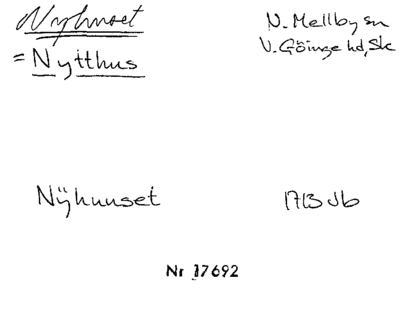 Nyhuset N. Mellby sn
= Nytthus V. Göinge hd, Sk
Nÿhuuset 1713 Jb
Nr 17692